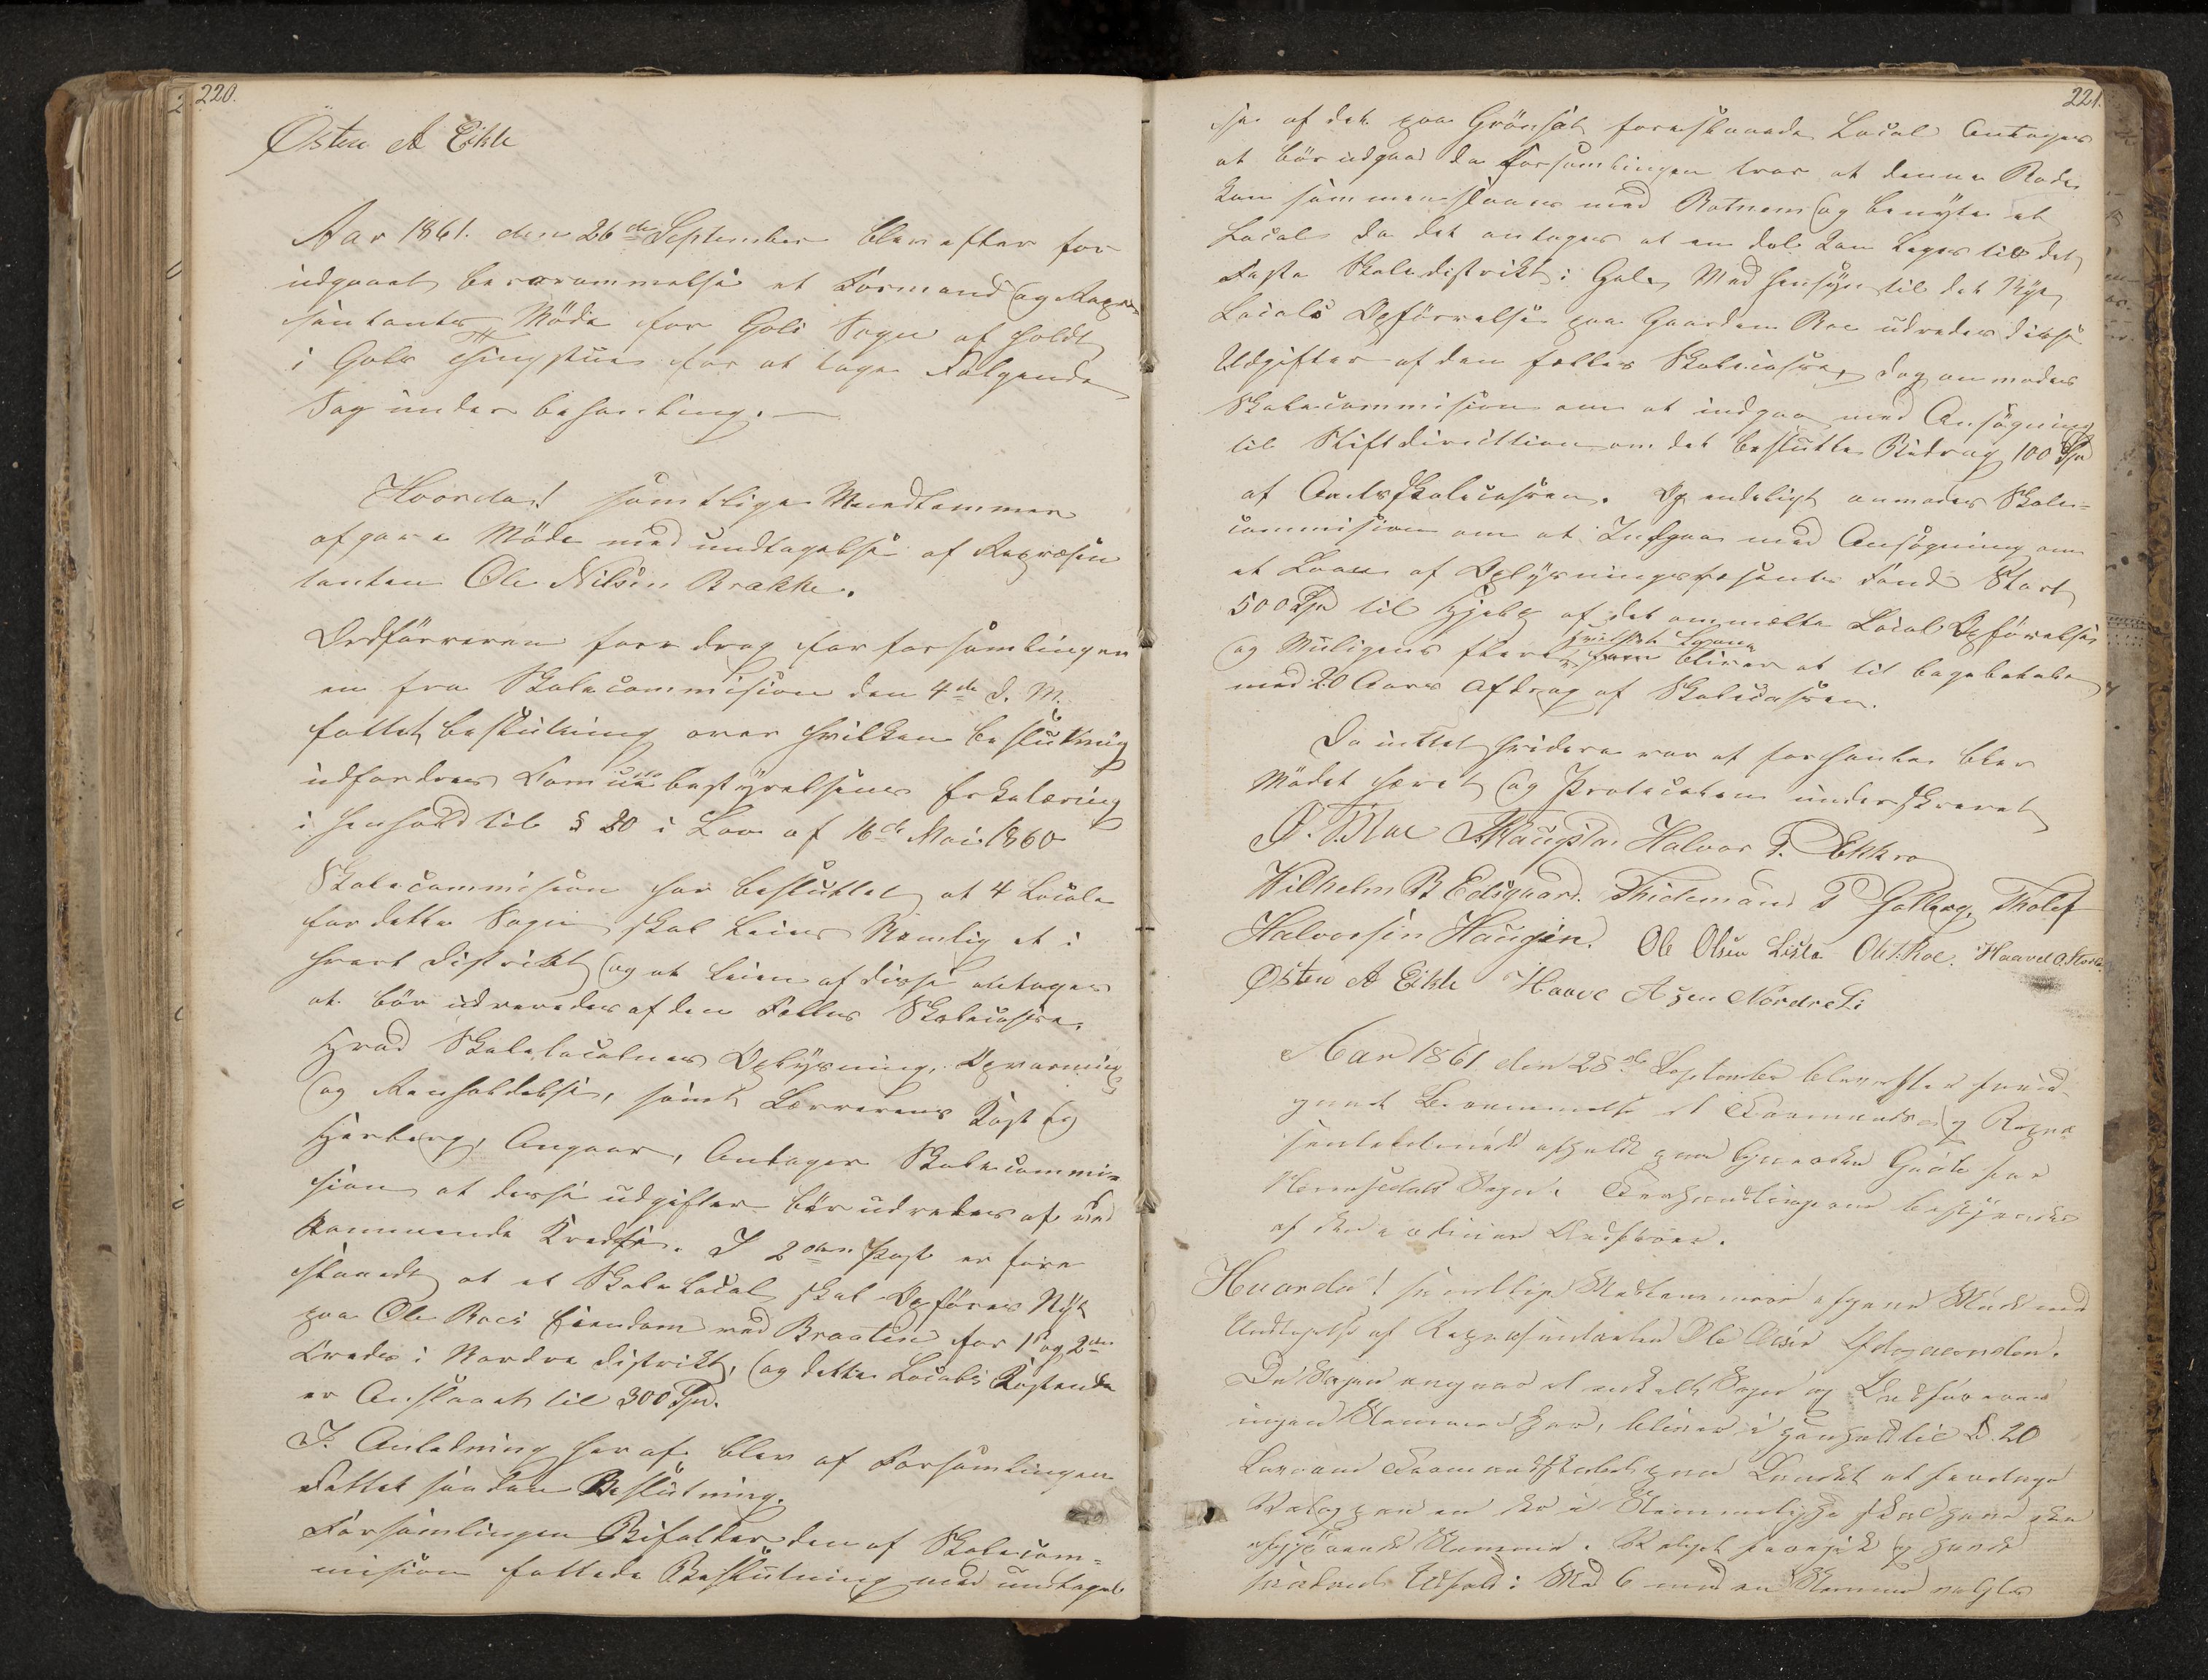 220.
Østen A Eikle
Aar 1861. den 26de September blev efter for
udgaaet berammelse et Formand og Repre
sentants Møde for Gols Sogn af holdt
i Gols Thingstue for at tage Følgende
Sag under behanling. —
Hvorda! samtlige Medlemmer
afgave Møde med undtagelse af Repræsen
tanten Ole Nilsen Brække.
Ordførreren fore drog for forsamlingen
en fra Skolecommisionen den 4de d. M.
fattet beslutning over hvilken beslutning
udfordres Communebestyrelsens Erkelæring
i henhold til § 20 i Lov af 16de Mai 1860
Skolecommisionen har besluttet at 4 Locale
for dette Sogn skal leies Nemlig et i
hvert Distrikt og at leien af disse antages
at bør udreredes af den Felles Skolecasse.
Hvad Skolelocalernes Oplysning, Opvarming
og Renholdelse, samt Lærrerens Kost og
Herberg, Angaar, Antager Skolecommi-
sionen at desse udgifter bør udredes af ved
kommende Kredse. I 2den Post er fore
slaaedt at et Skole Local skal Opføres Nyt
paa Ole Roes Eiendom ved Braaten for 1ste og 2den
Krede i Nordre Distrikt, og dette Locals Kostende
er Anslaaet til 300 Spd.
I Anledning heraf blev af Forsamlingen
Fattet saadan Beslutning.
Forsamlingen Bifalder den af Skolecom-
mision fattede Beslutning med undtagel
221.
se af det paa Grønset foreslaaede Local Antages
at bør udgaa da Forsamlingen tror at denne Rode
kan sammenslaaes med Rotnem og benytte et
Local da det antages at en del kan leges til det
Faste Skoledistrikt i Gol, Med hensyn til det Nye
Locals Opførrelse paa Gaarden Roe udredes disse
Udgifter af den felles Skolecasse, dog anmodes
Skolecommisionen om at indgaa med Ansøgning
til Stiftdirecttionen om det besluttte Bidrag 100 Spd
af Amtsskolecassen. Og endeligt anmodes Skole-
commisionen om at Indgaa med Ansøgning om
et Laan af Oplysningsvesents Fond Stort
500 Spd til Hjelp af det anmeldte Local Opførelse
og Muligens flere hvilket Laan bliver at til bagebetale
med 20 Aars Afdrag af Skolecassen.
Da inttet hvidere var at forhanle blev
Mødet hævet og Protocolen underskrevet
O. T. Roe Haugsta. Halvor T. Ekkro
Wilhelm B Eidsgaard. Thidemand T Golberg, Tholef
Halvorsen Haugen. Ole Olsen Lista Ole T. Roe. Haavel O.
Østen A Eikle Haave Asen Nordre Li
Aar 1861 den 28de September blev efter forud
gaaet Berammelse et Formands og Repræ
sentantmøde afholdt paa Gaarden for
Hemsedals Sogn. Forhandlingerne bestyredes
af den ordinære Ordfører.
Hvorda! samtlige Medlemmer afgave Møde med
Undtagelse af Repræsentanten Ole Olsen
Da Sagen angaar et enkelt Sogn og Ordføreren
ingen Stemme har, bliver i Henhold til § 20
Lov om Formandskaber paa Landet at foretage
Valg paa en der i Stemmelighed skal have den
afgjørende Stemme. Valget foregik og havde
saadant Udfald: Med 6 Stemmer valgtes